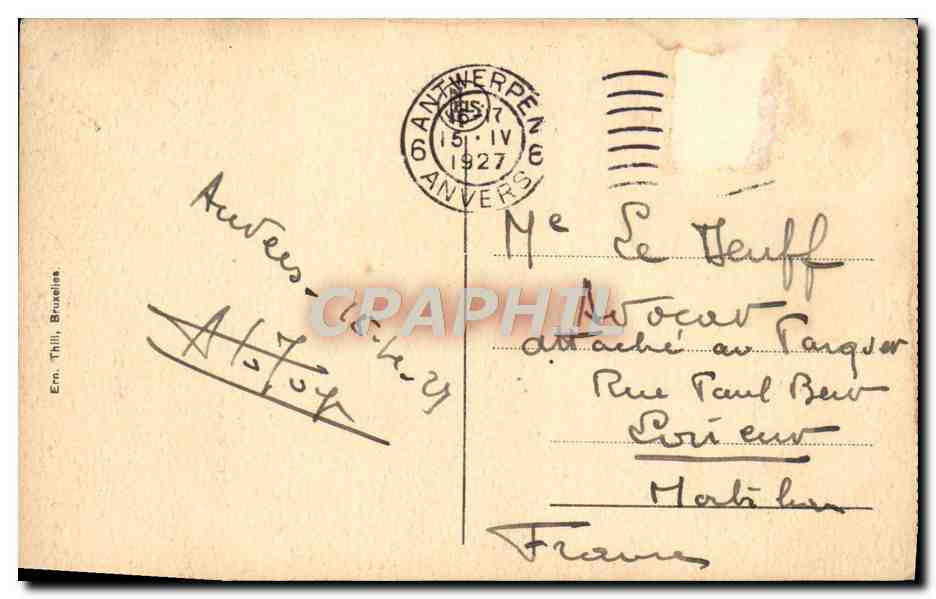 Ern. Thill, Bruxelles.
ANTWERPEN
15. IV
1927
6 6
ANVERS
Anvers-15-4-27
Me Le Neuff
Avocat
attaché au Parquet
Rue Paul Bert
Lorient
Morbihan
France
CPAPHIL